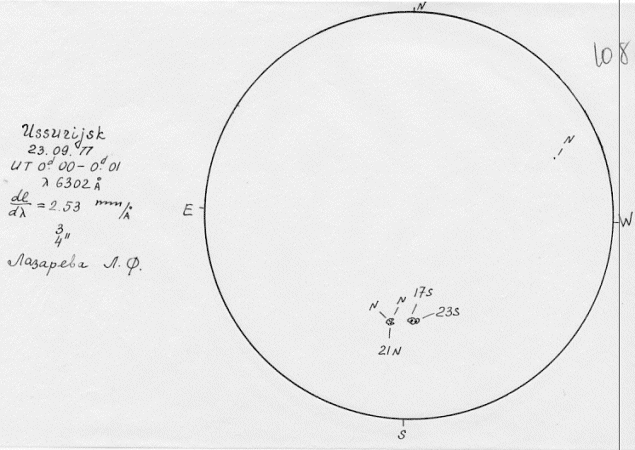 N
108
Ussurijsk
23.09.77
UT 0.ᵈ00 - 0.ᵈ01
λ 6302 Å
dl/dλ = 2.53 mm/Å
3/4"
Лазарева Л.Ф.
N
E
W
N N 17S
23S
21N
S